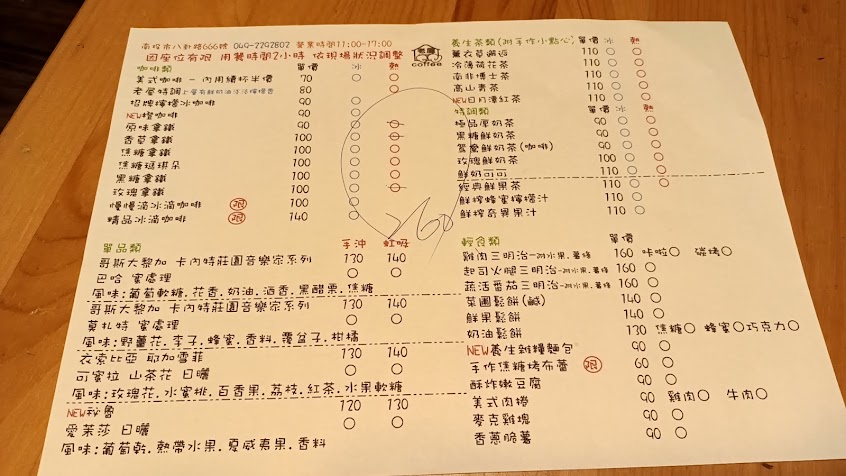 南投市八卦路666號 049-2292802 營業時間11:00-17:00
因座位有限 用餐時間2小時 依現場狀況調整
coffee
咖啡類 單價 冰 熱
美式咖啡 - 內用續杯半價 70 ○ ○
老屋特調 80 ○
招牌檸檬冰咖啡 90 ○
NEW橙咖啡 90 ○
原味拿鐵 90 ○ ○
香草拿鐵 100 ○ ○
焦糖拿鐵 100 ○ ○
焦糖瑪琪朵 100 ○ ○
黑糖拿鐵 100 ○ ○
玫瑰拿鐵 100 ○ ○
慢慢滴冰滴咖啡 限 100 ○
精品冰滴咖啡 限 140 ○
260
單品類 手沖 虹吸
哥斯大黎加 卡內特莊園音樂家系列 130 140
巴哈 蜜處理 ○ ○
風味:葡萄軟糖.花香.奶油.酒香.黑醋栗.焦糖
哥斯大黎加 卡內特莊園音樂家系列 130 140
莫札特 蜜處理 ○ ○
風味:野薑花.李子.蜂蜜.香料.覆盆子.柑橘
衣索比亞 耶加雪菲 130 140
可蜜拉 山茶花 日曬 ○ ○
風味:玫瑰花.水蜜桃.百香果.荔枝.紅茶.水果軟糖
NEW秘魯 120 130
愛茉莎 日曬 ○ ○
風味:葡萄乾.熱帶水果.夏威夷果.香料
養生茶類(附手作小點心) 單價 冰 熱
薰衣草邂逅 110 ○ ○
冷薄荷花茶 110 ○ ○
南非博士茶 110 ○ ○
高山青茶 110 ○ ○
NEW日月潭紅茶 110 ○ ○
特調類 單價 冰 熱
極品厚奶茶 90 ○ ○
黑糖鮮奶茶 90 ○ ○
鴛鴦鮮奶茶(咖啡) 90 ○ ○
玫瑰鮮奶茶 100 ○ ○
鮮奶可可 110 ○ ○
經典鮮果茶 110 ○ ○
鮮榨蜂蜜檸檬汁 110 ○
鮮榨奇異果汁 110 ○
輕食類 單價
雞肉三明治-附水果.薯條 160 咔啦○ 碳烤○
起司火腿三明治-附水果.薯條 160 ○
蔬活番茄三明治-附水果.薯條 160 ○
菜圃鬆餅(鹹) 140 ○
鮮果鬆餅 140 ○
奶油鬆餅 130 焦糖○ 蜂蜜○巧克力○
NEW養生雜糧麵包 90 ○
手作焦糖烤布蕾 限 60 ○
酥炸嫩豆腐 90 ○
美式肉捲 90 雞肉○ 牛肉○
麥克雞塊 90 ○
香蔥脆薯 90 ○